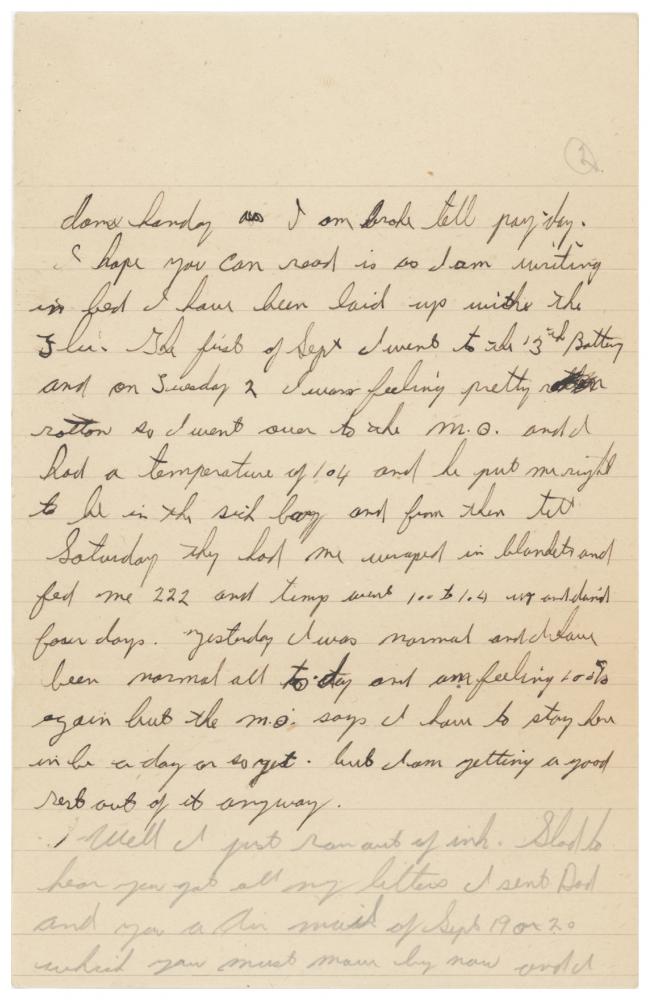 2
dam handy as I am broke tell pay-day.
I hope you can read is as I am writing
in bed I have been laid up withe the
Flu. The first of Sept I went to the 13th Battery
and on Tuesday 2 I was feeling pretty
rotton so I went over to the M.O. and I
had a temperature of 104 and he put me right
to be in the sick bay and from then tell
Saturday thy had me wraped in blankets and
fed me 222 and temp went 100 to 104 up and
four days. Yesterday I was normal and I have
been normal all to-day and am feeling 100%
again but the M.O. says I have to stay here
in be a day or so yet. but I am getting a good
rest out of it anyway.
Well I just ran out of ink. Glad to
hear you got all my letters I sent Dad
and you a Air mail of Sept 19 or 20
which you must have by now and I